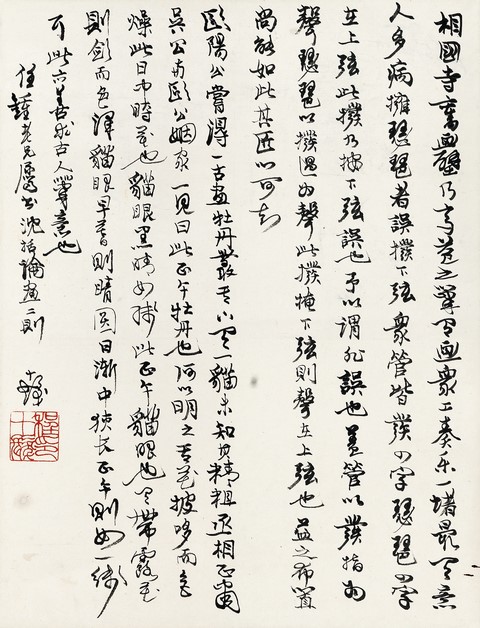 相國寺舊畫壁乃高益之筆有畫衆工奏樂一堵最有意
人多病擁琵琶者誤撥下弦衆管皆發四字琵琶四字
在上弦此撥乃掩下弦誤也予以謂非誤也蓋管以發指爲
聲琵琶以撥過爲聲此撥掩下弦則聲在上弦也益之布置
尚能如此其匠心可知
歐陽公嘗得一古畫牡丹叢其下有一貓未知其精粗丞相正肅
吳公與歐公姻家一見曰此正午牡丹也何以明之其花披哆而色
燥此日中時花也貓眼黑睛如線此正午貓眼也有帶露花
則斂而色澤貓眼早暮則睛圓日漸中狹長正午則如一線
耳此亦善求古人筆意也
老兄屬書沈括論畫二則 十髮